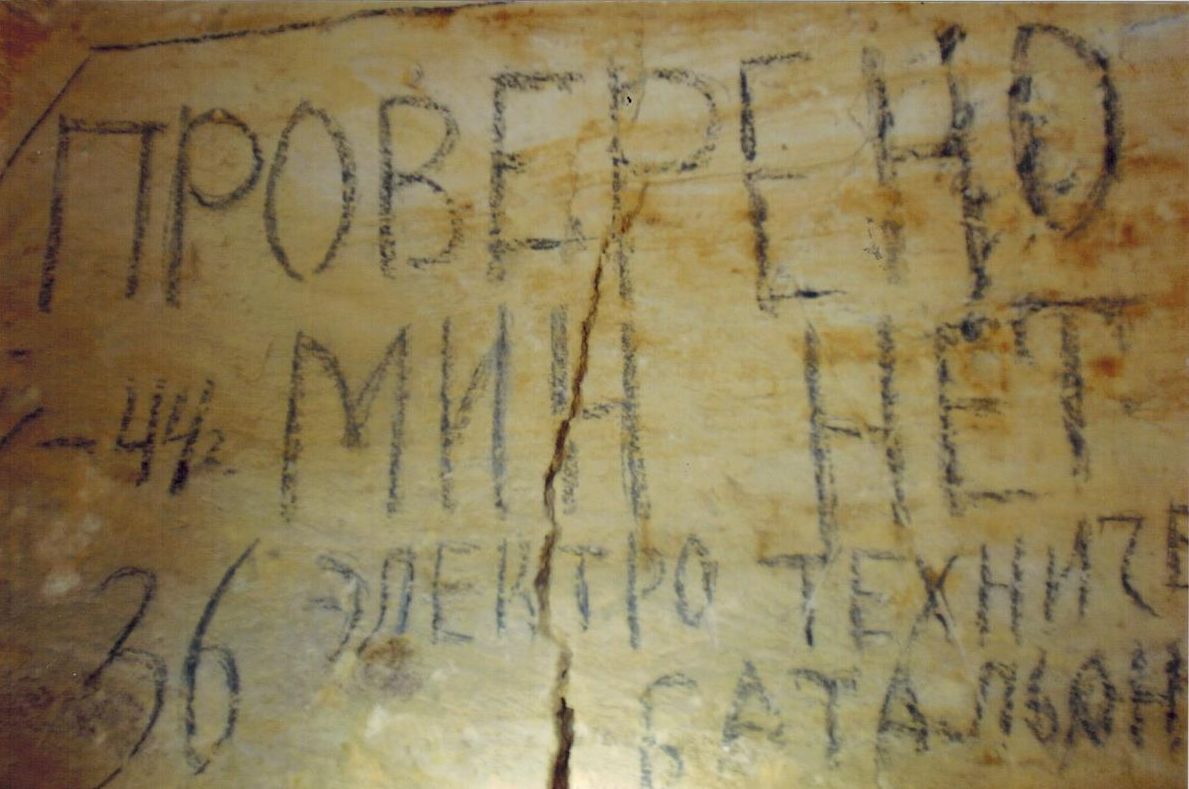 ПРОВЕРЕНО
МИН НЕТ
-44г
36 ЭЛЕКТРО ТЕХНИЧЕ
БАТАЛЬОН